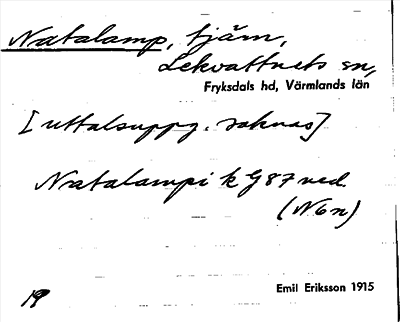 Natalamp, tjärn,
Lekvattnets sn,
Fryksdals hd, Värmlands län
[uttalsuppg. saknas]
Natalampi k G87 ned.
(N6n)
19
Emil Eriksson 1915